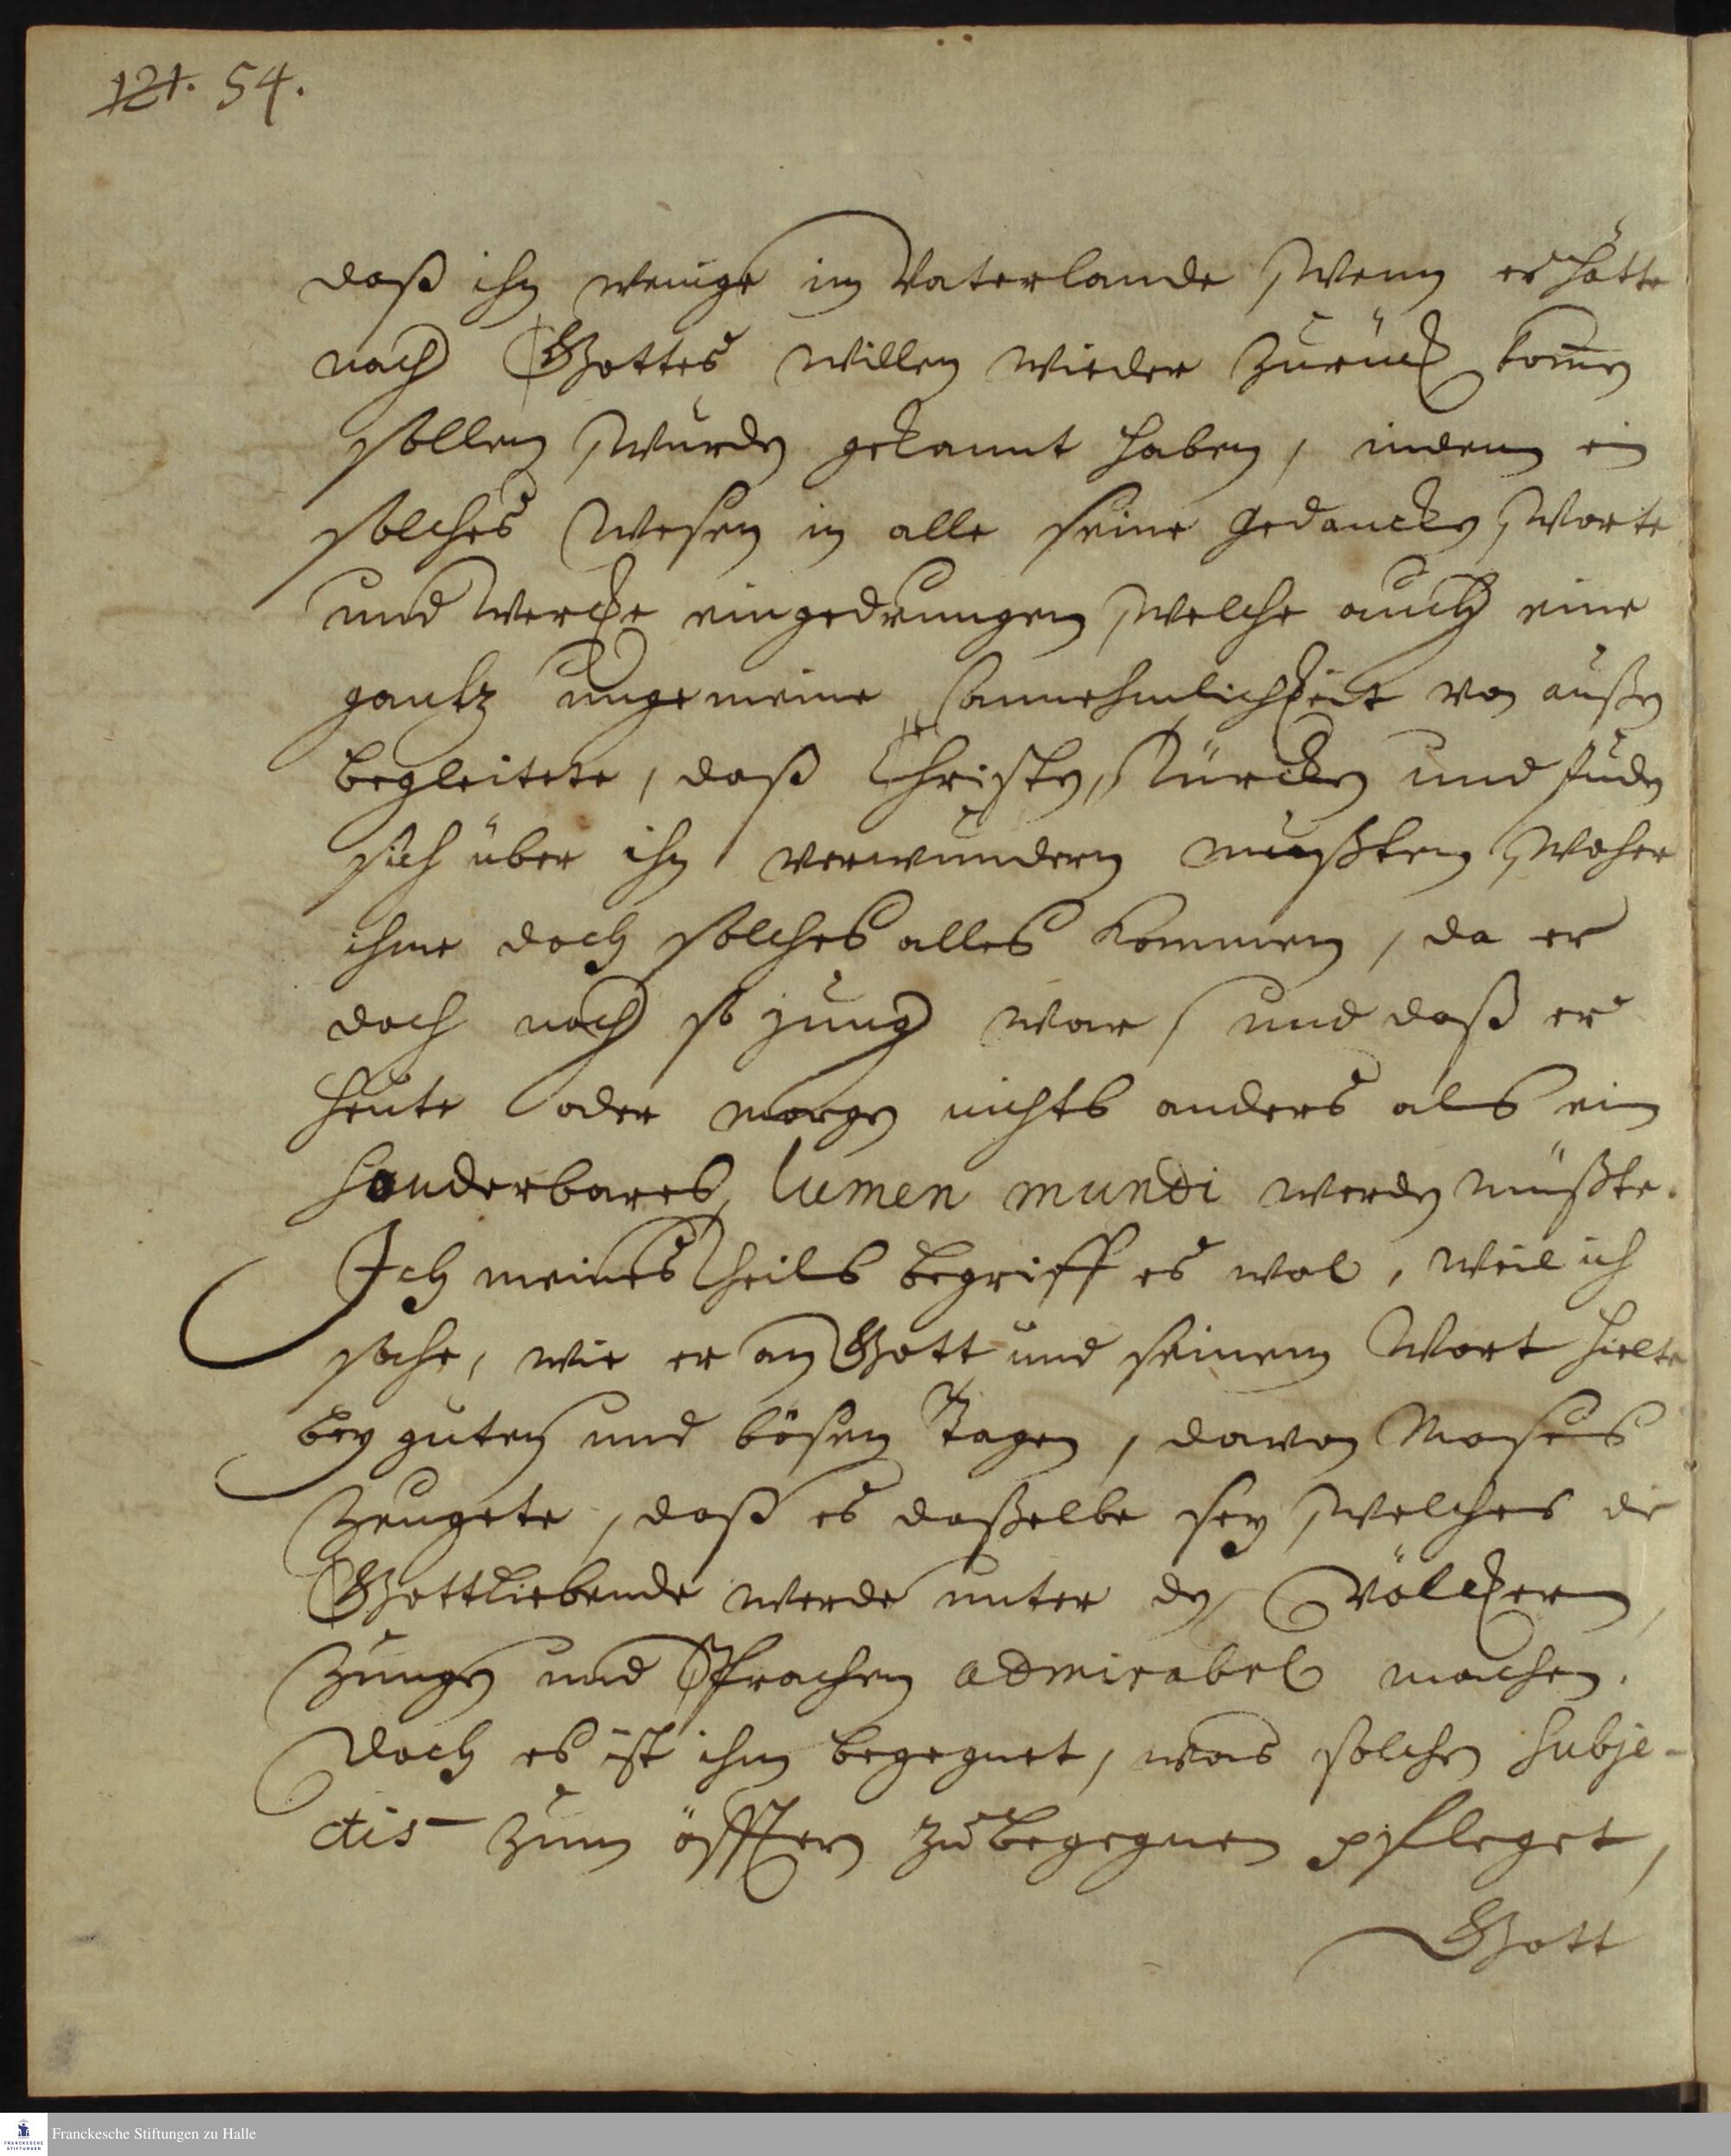 121. 54.
daß ihn wenige im Vaterlande, wenn er hätte
nach Gottes willen wieder zurück kom̄en
sollen, würden gekannt haben, indem ein
solches Wesen in alle seine Gedancken, Worte
und Wercke eingedrungen, welche auch eine
gantz ungemeine Annehmlichkeit von außen
begleitete, daß Christen, Türcken und Juden
sich über ihn verwundern mußten, woher
ihme doch solches alles kommen, da er
doch noch so jung war, und daß er
heute oder morgen nichts anders als ein
sonderbares lumen mundi werden müßte.
Ich meines Theils begriff es wol, weil ich
sahe, wie er an Gott und seinem Wort hielte
bey guten und bösen Tagen, davon Moses
zeugete, daß es daßelbe sey, welches die
Gottliebende werde unter den Völckern,
Zungen und Sprachen admirabel machen.
Doch es ist ihm begegnet, was solchen subje-
ctis zum öfftern zu begegnen pfleget,
Gott
Franckesche Stiftungen zu Halle